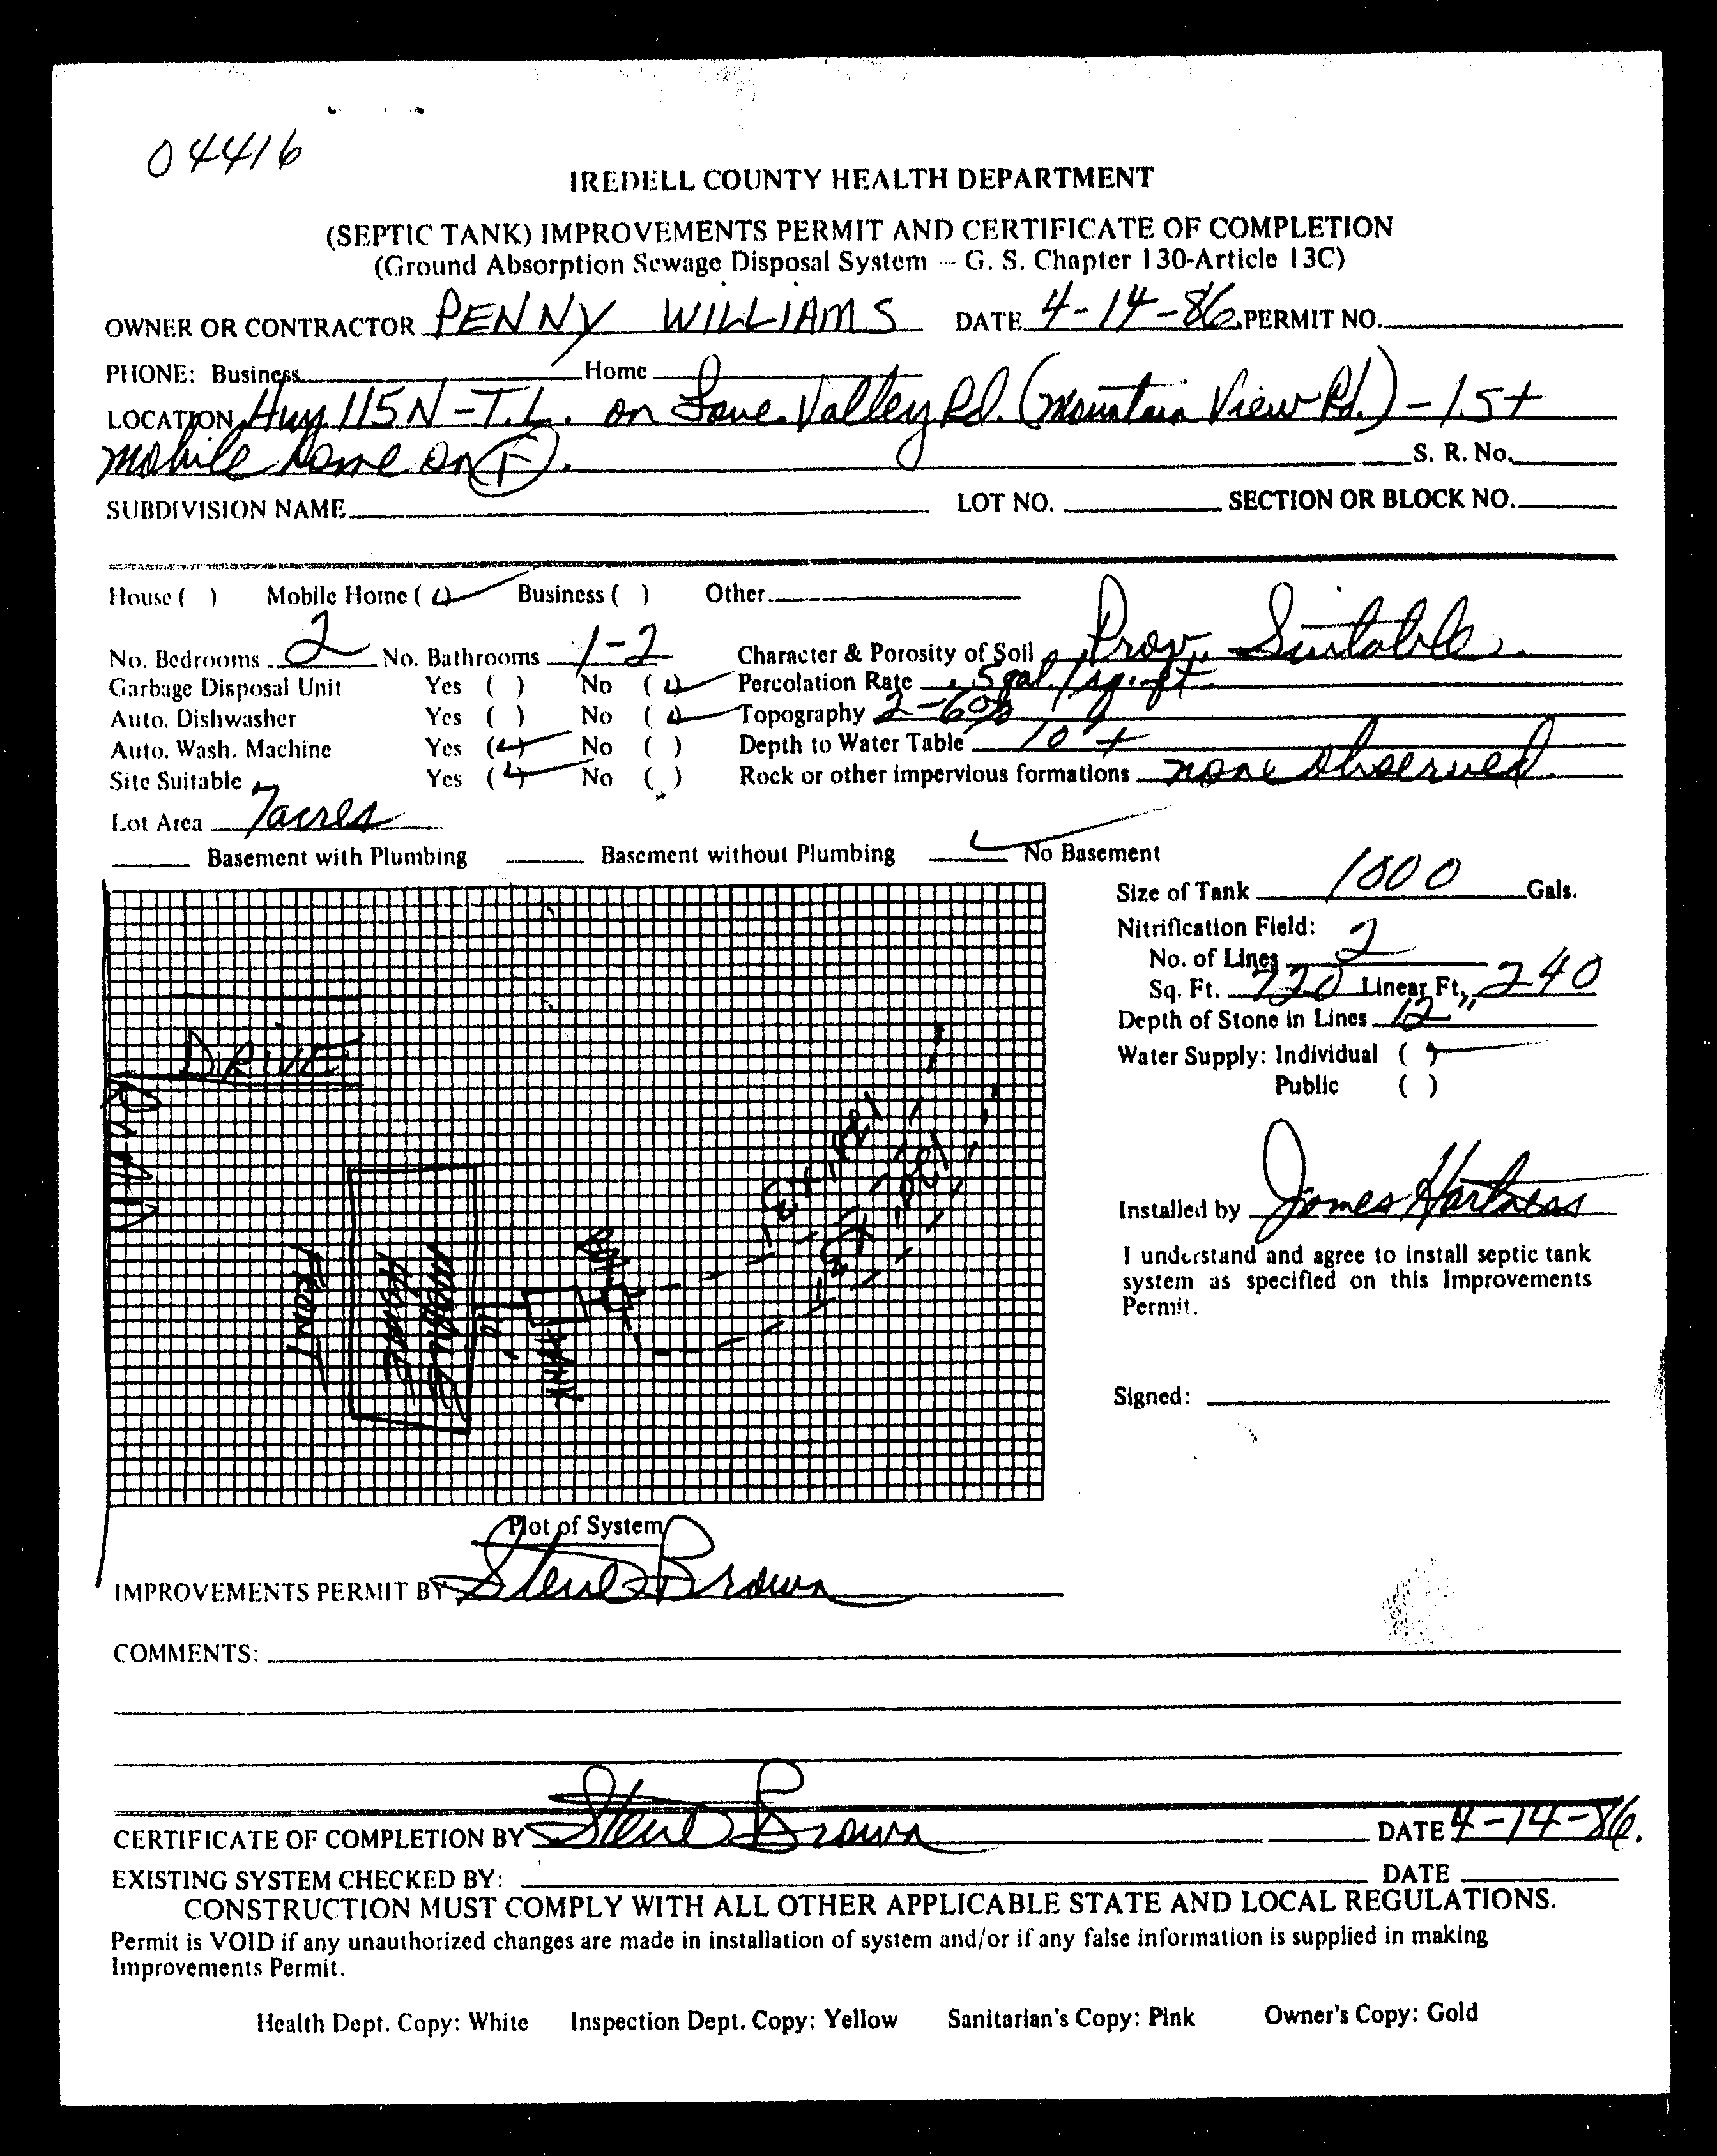 04416
IREDELL COUNTY HEALTH DEPARTMENT
(SEPTIC TANK) IMPROVEMENTS PERMIT AND CERTIFICATE OF COMPLETION
(Ground Absorption Sewage Disposal System — G. S. Chapter 130-Article 13C)
OWNER OR CONTRACTOR PENNY WILLIAMS DATE 4-14-86 PERMIT NO.
PHONE: Business Home
LOCATION Hwy 115 N - T.L. on Love Valley Rd. (Mountain View Rd.) - 1st
mobile home on
S. R. No.
SUBDIVISION NAME LOT NO. SECTION OR BLOCK NO.
House ( ) Mobile Home (✓) Business ( ) Other
No. Bedrooms 2 No. Bathrooms 1-2 Character & Porosity of Soil Prov. Suitable
Garbage Disposal Unit Yes ( ) No (✓) Percolation Rate .5 gal./sq. ft.
Auto. Dishwasher Yes ( ) No (✓) Topography 2-6%
Auto. Wash. Machine Yes (✓) No ( ) Depth to Water Table 10+
Site Suitable Yes (✓) No ( ) Rock or other impervious formations none observed.
Lot Area 7 acres
Basement with Plumbing Basement without Plumbing ✓ No Basement
Size of Tank 1000 Gals.
Nitrification Field:
No. of Lines 2
Sq. Ft. 720 Linear Ft. 240
Depth of Stone in Lines 12"
Water Supply: Individual (✓)
Public ( )
DRIVE
ROAD
FRONT
MOBILE
HOME
10'
TANK
120' x 3'
120' x 3'
Installed by James Hartness
I understand and agree to install septic tank
system as specified on this Improvements
Permit.
Signed:
Plot of System
IMPROVEMENTS PERMIT BY Steve Brown
COMMENTS:
CERTIFICATE OF COMPLETION BY Steve Brown DATE 4-14-86.
EXISTING SYSTEM CHECKED BY: DATE
CONSTRUCTION MUST COMPLY WITH ALL OTHER APPLICABLE STATE AND LOCAL REGULATIONS.
Permit is VOID if any unauthorized changes are made in installation of system and/or if any false information is supplied in making
Improvements Permit.
Health Dept. Copy: White Inspection Dept. Copy: Yellow Sanitarian's Copy: Pink Owner's Copy: Gold